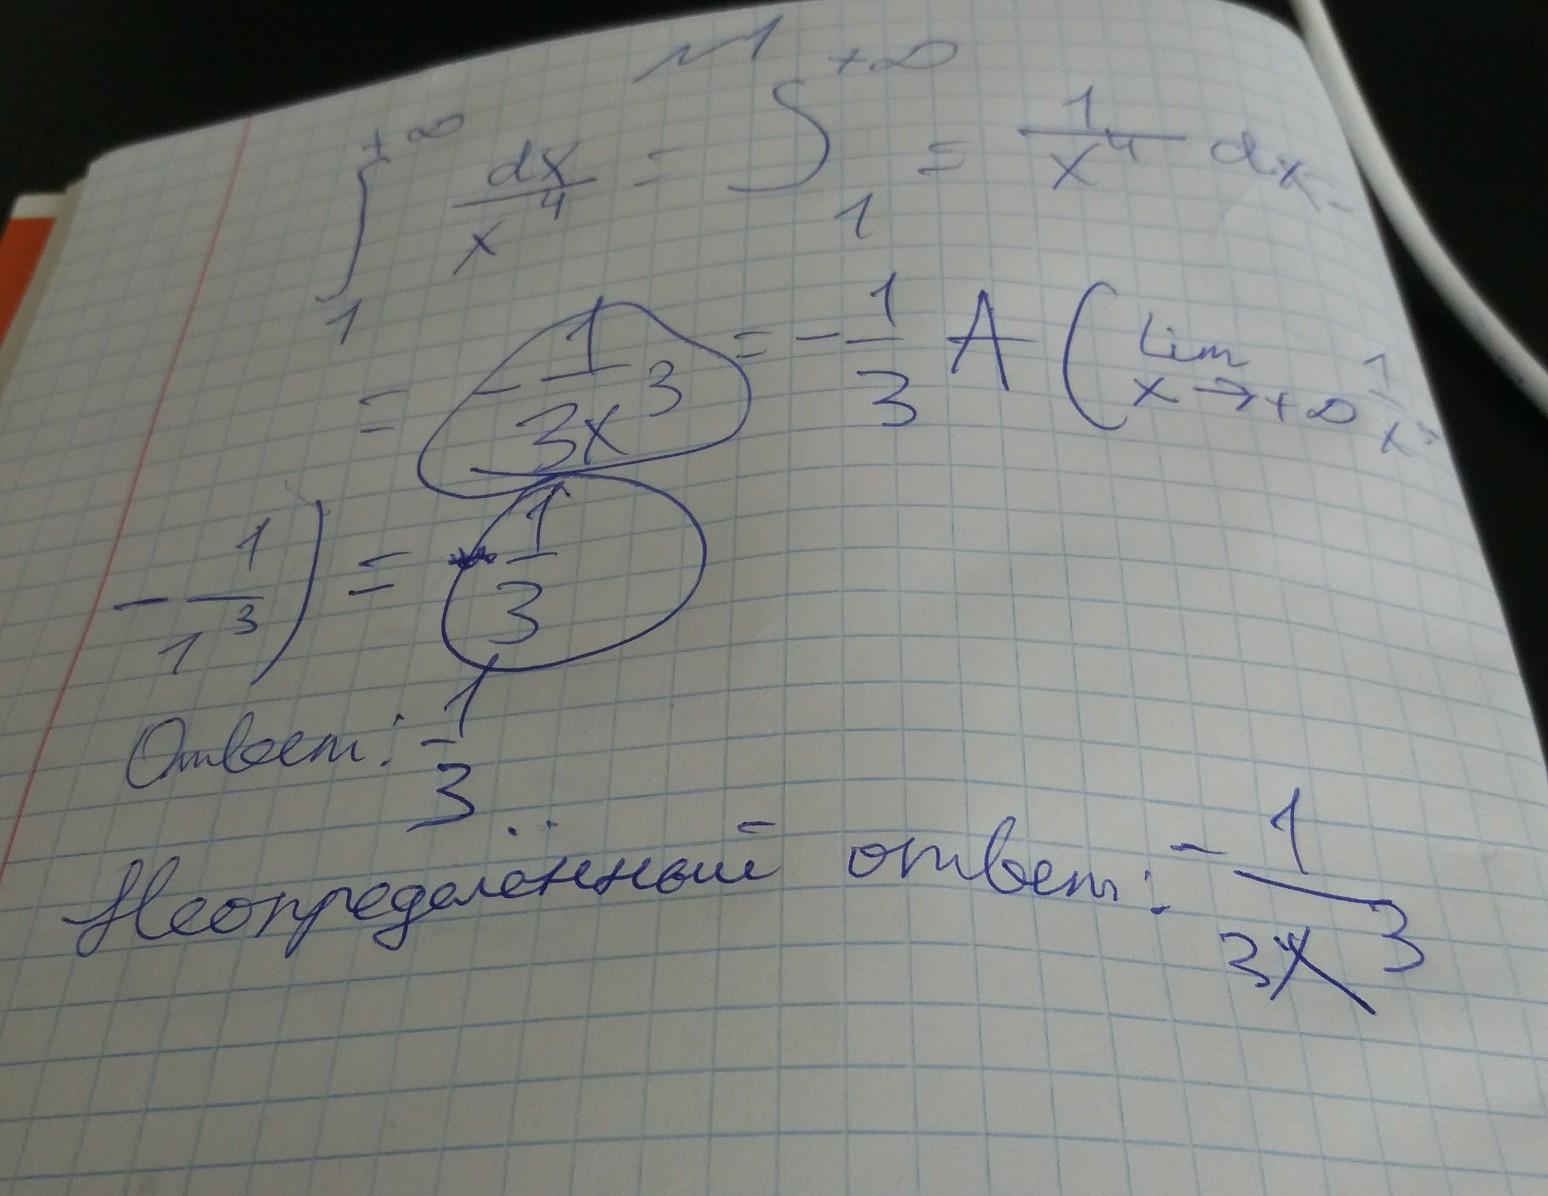 ∫₁^{+∞} dx/x⁴ = ∫₁^{+∞} = 1/x⁴ dx =
= -1/3x³ = -1/3 A ( lim x→+∞ 1/x³
- 1/1³ ) = 1/3
Ответ: 1/3
Неопределённый ответ: -1/3x³